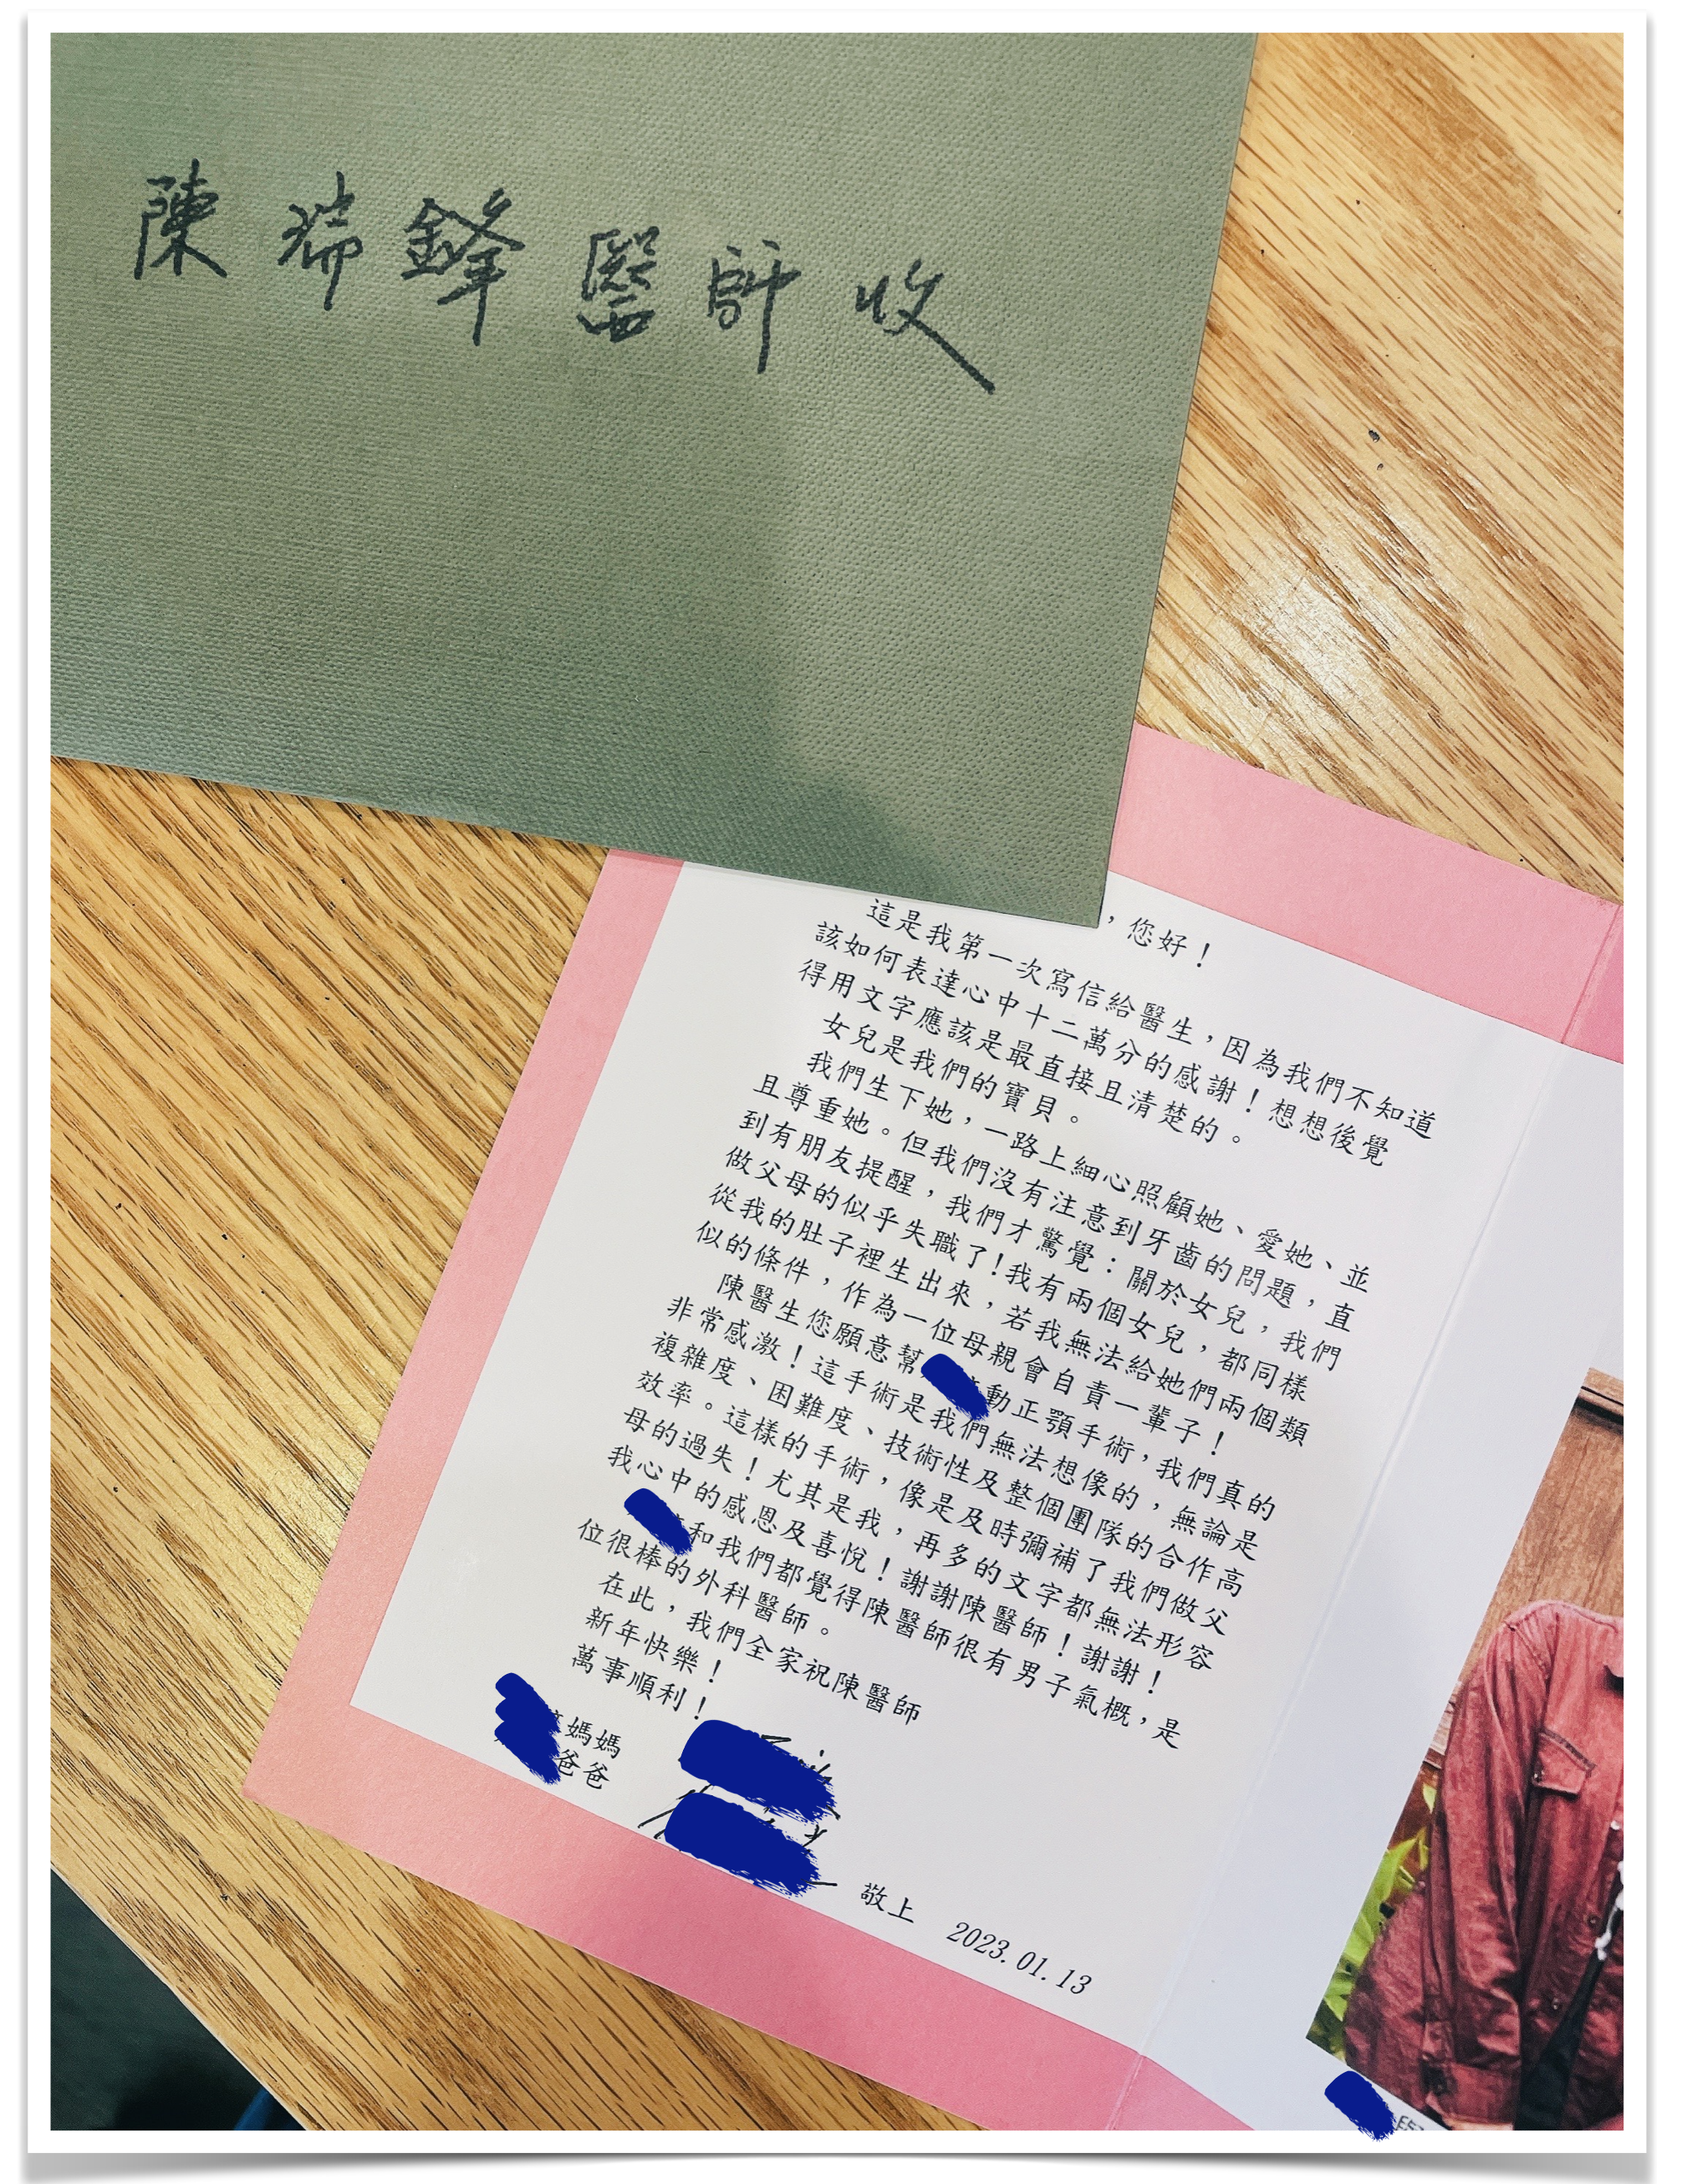 陳瑞鋒醫師收
,您好!
這是我第一次寫信給醫生,因為我們不知道
該如何表達心中十二萬分的感謝!想想後覺
得用文字應該是最直接且清楚的。
女兒是我們的寶貝。
我們生下她,一路上細心照顧她、愛她、並
且尊重她。但我們沒有注意到牙齒的問題,直
到有朋友提醒,我們才驚覺:關於女兒,我們
做父母的似乎失職了!我有兩個女兒,都同樣
從我的肚子裡生出來,若我無法給她們兩個類
似的條件,作為一位母親會自責一輩子!
陳醫生您願意幫動正顎手術,我們真的
非常感激!這手術是我們無法想像的,無論是
複雜度、困難度、技術性及整個團隊的合作高
效率。這樣的手術,像是及時彌補了我們做父
母的過失!尤其是我,再多的文字都無法形容
我心中的感恩及喜悅!謝謝陳醫師!謝謝!
和我們都覺得陳醫師很有男子氣概,是
位很棒的外科醫師。
在此,我們全家祝陳醫師
新年快樂!
萬事順利!
媽媽
爸爸
敬上 2023.01.13